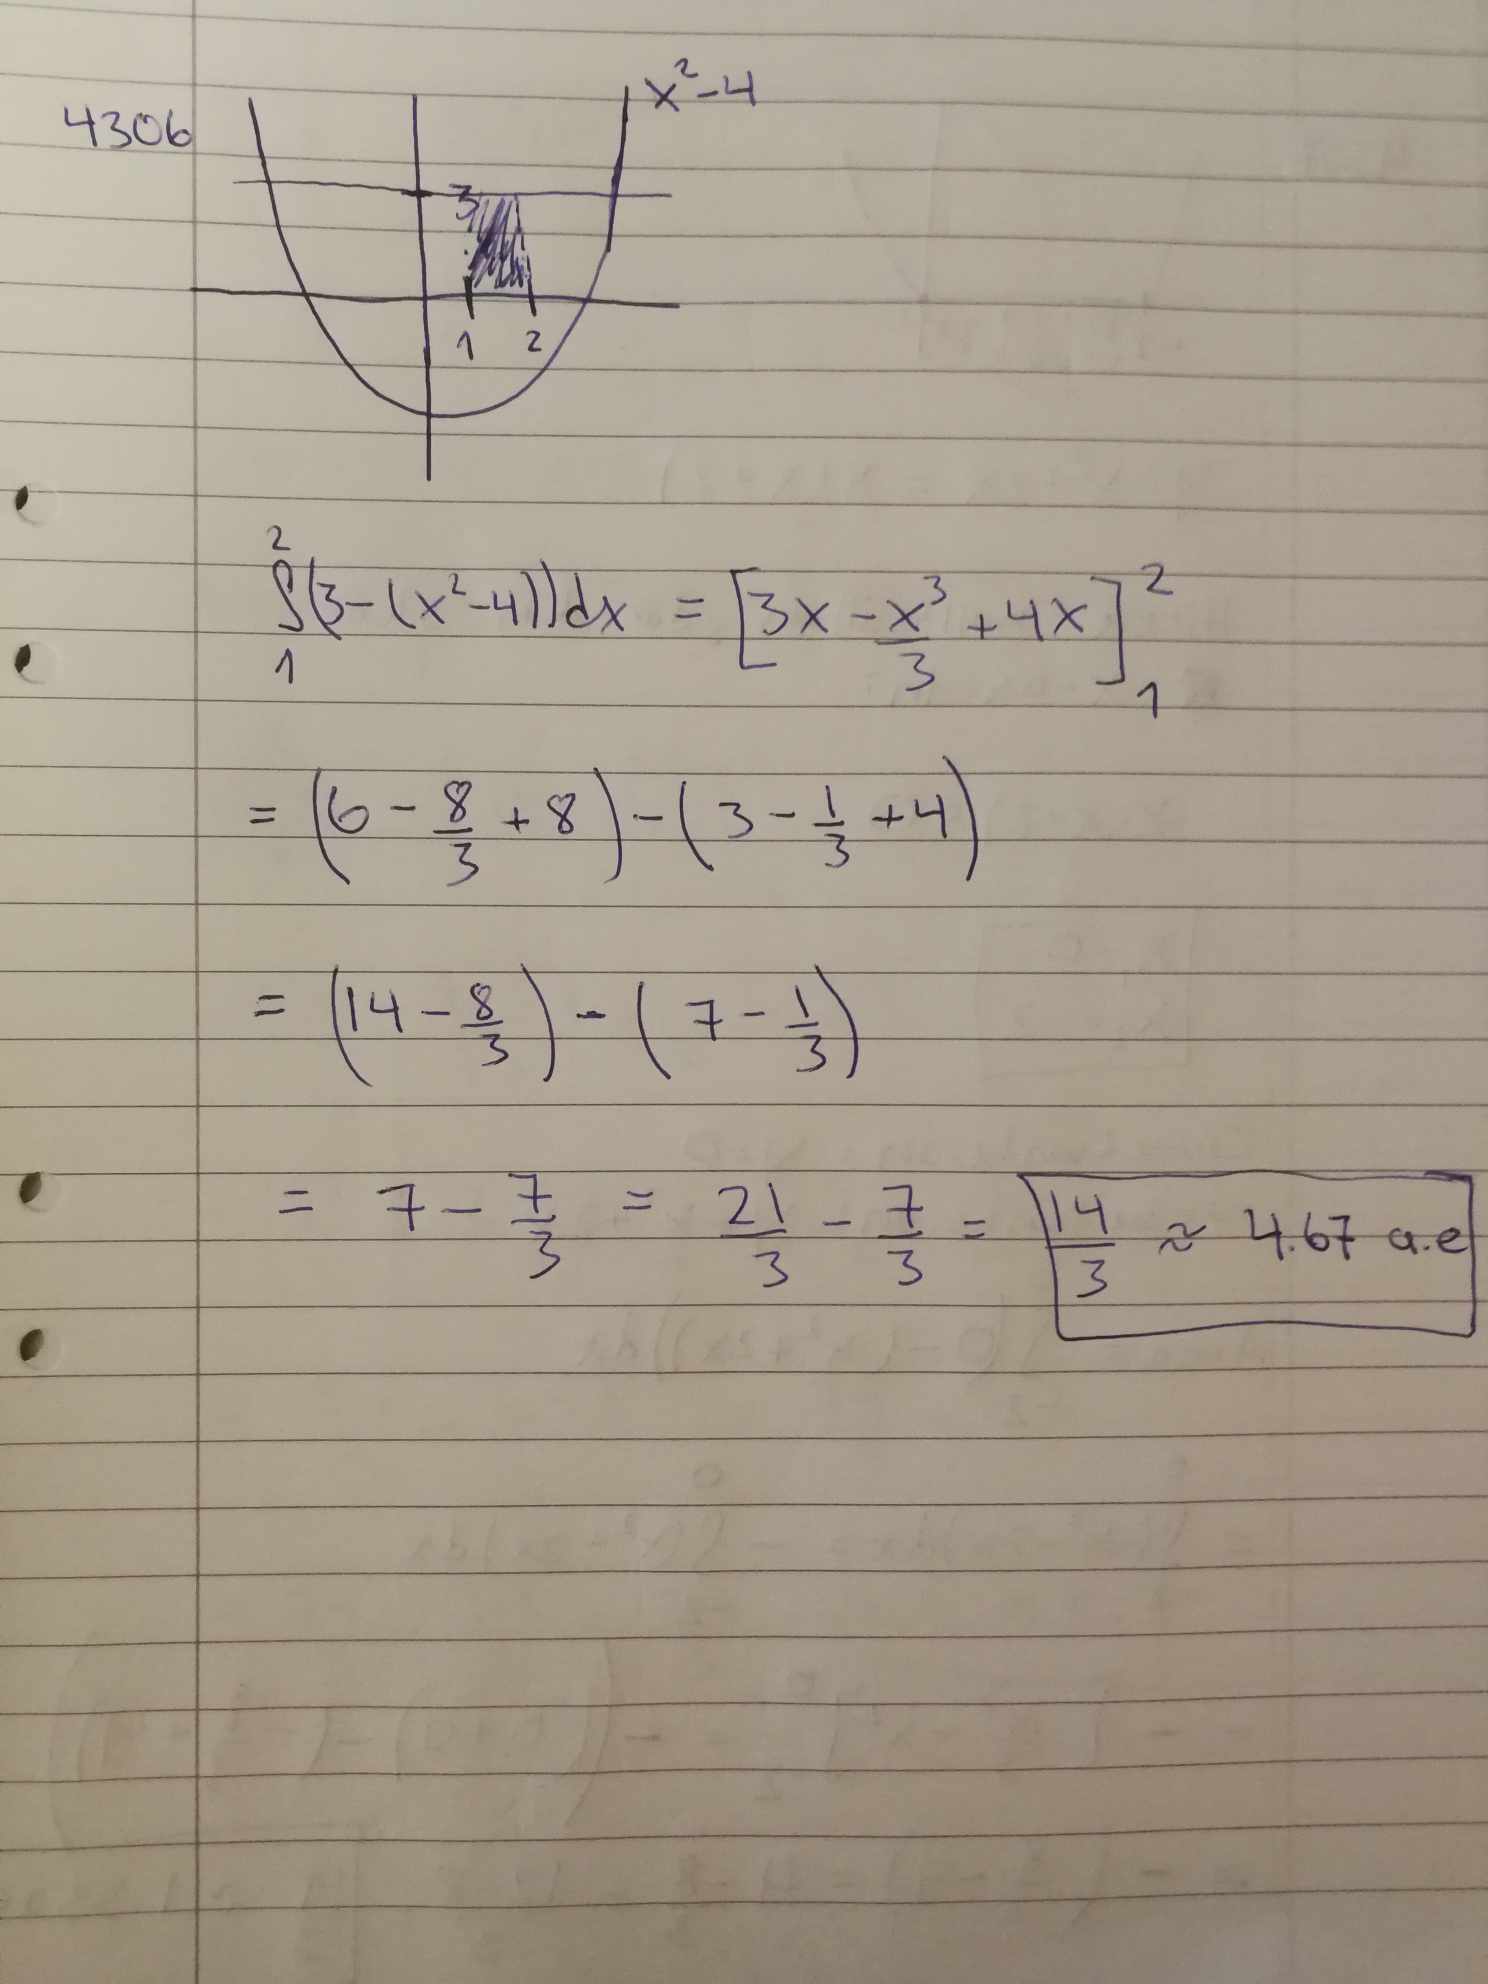 4306
x²-4
3
1 2
∫₁² (3-(x²-4))dx = [3x - x³/3 + 4x]₁²
= (6 - 8/3 + 8) - (3 - 1/3 + 4)
= (14 - 8/3) - (7 - 1/3)
= 7 - 7/3 = 21/3 - 7/3 = 14/3 ≈ 4.67 a.e